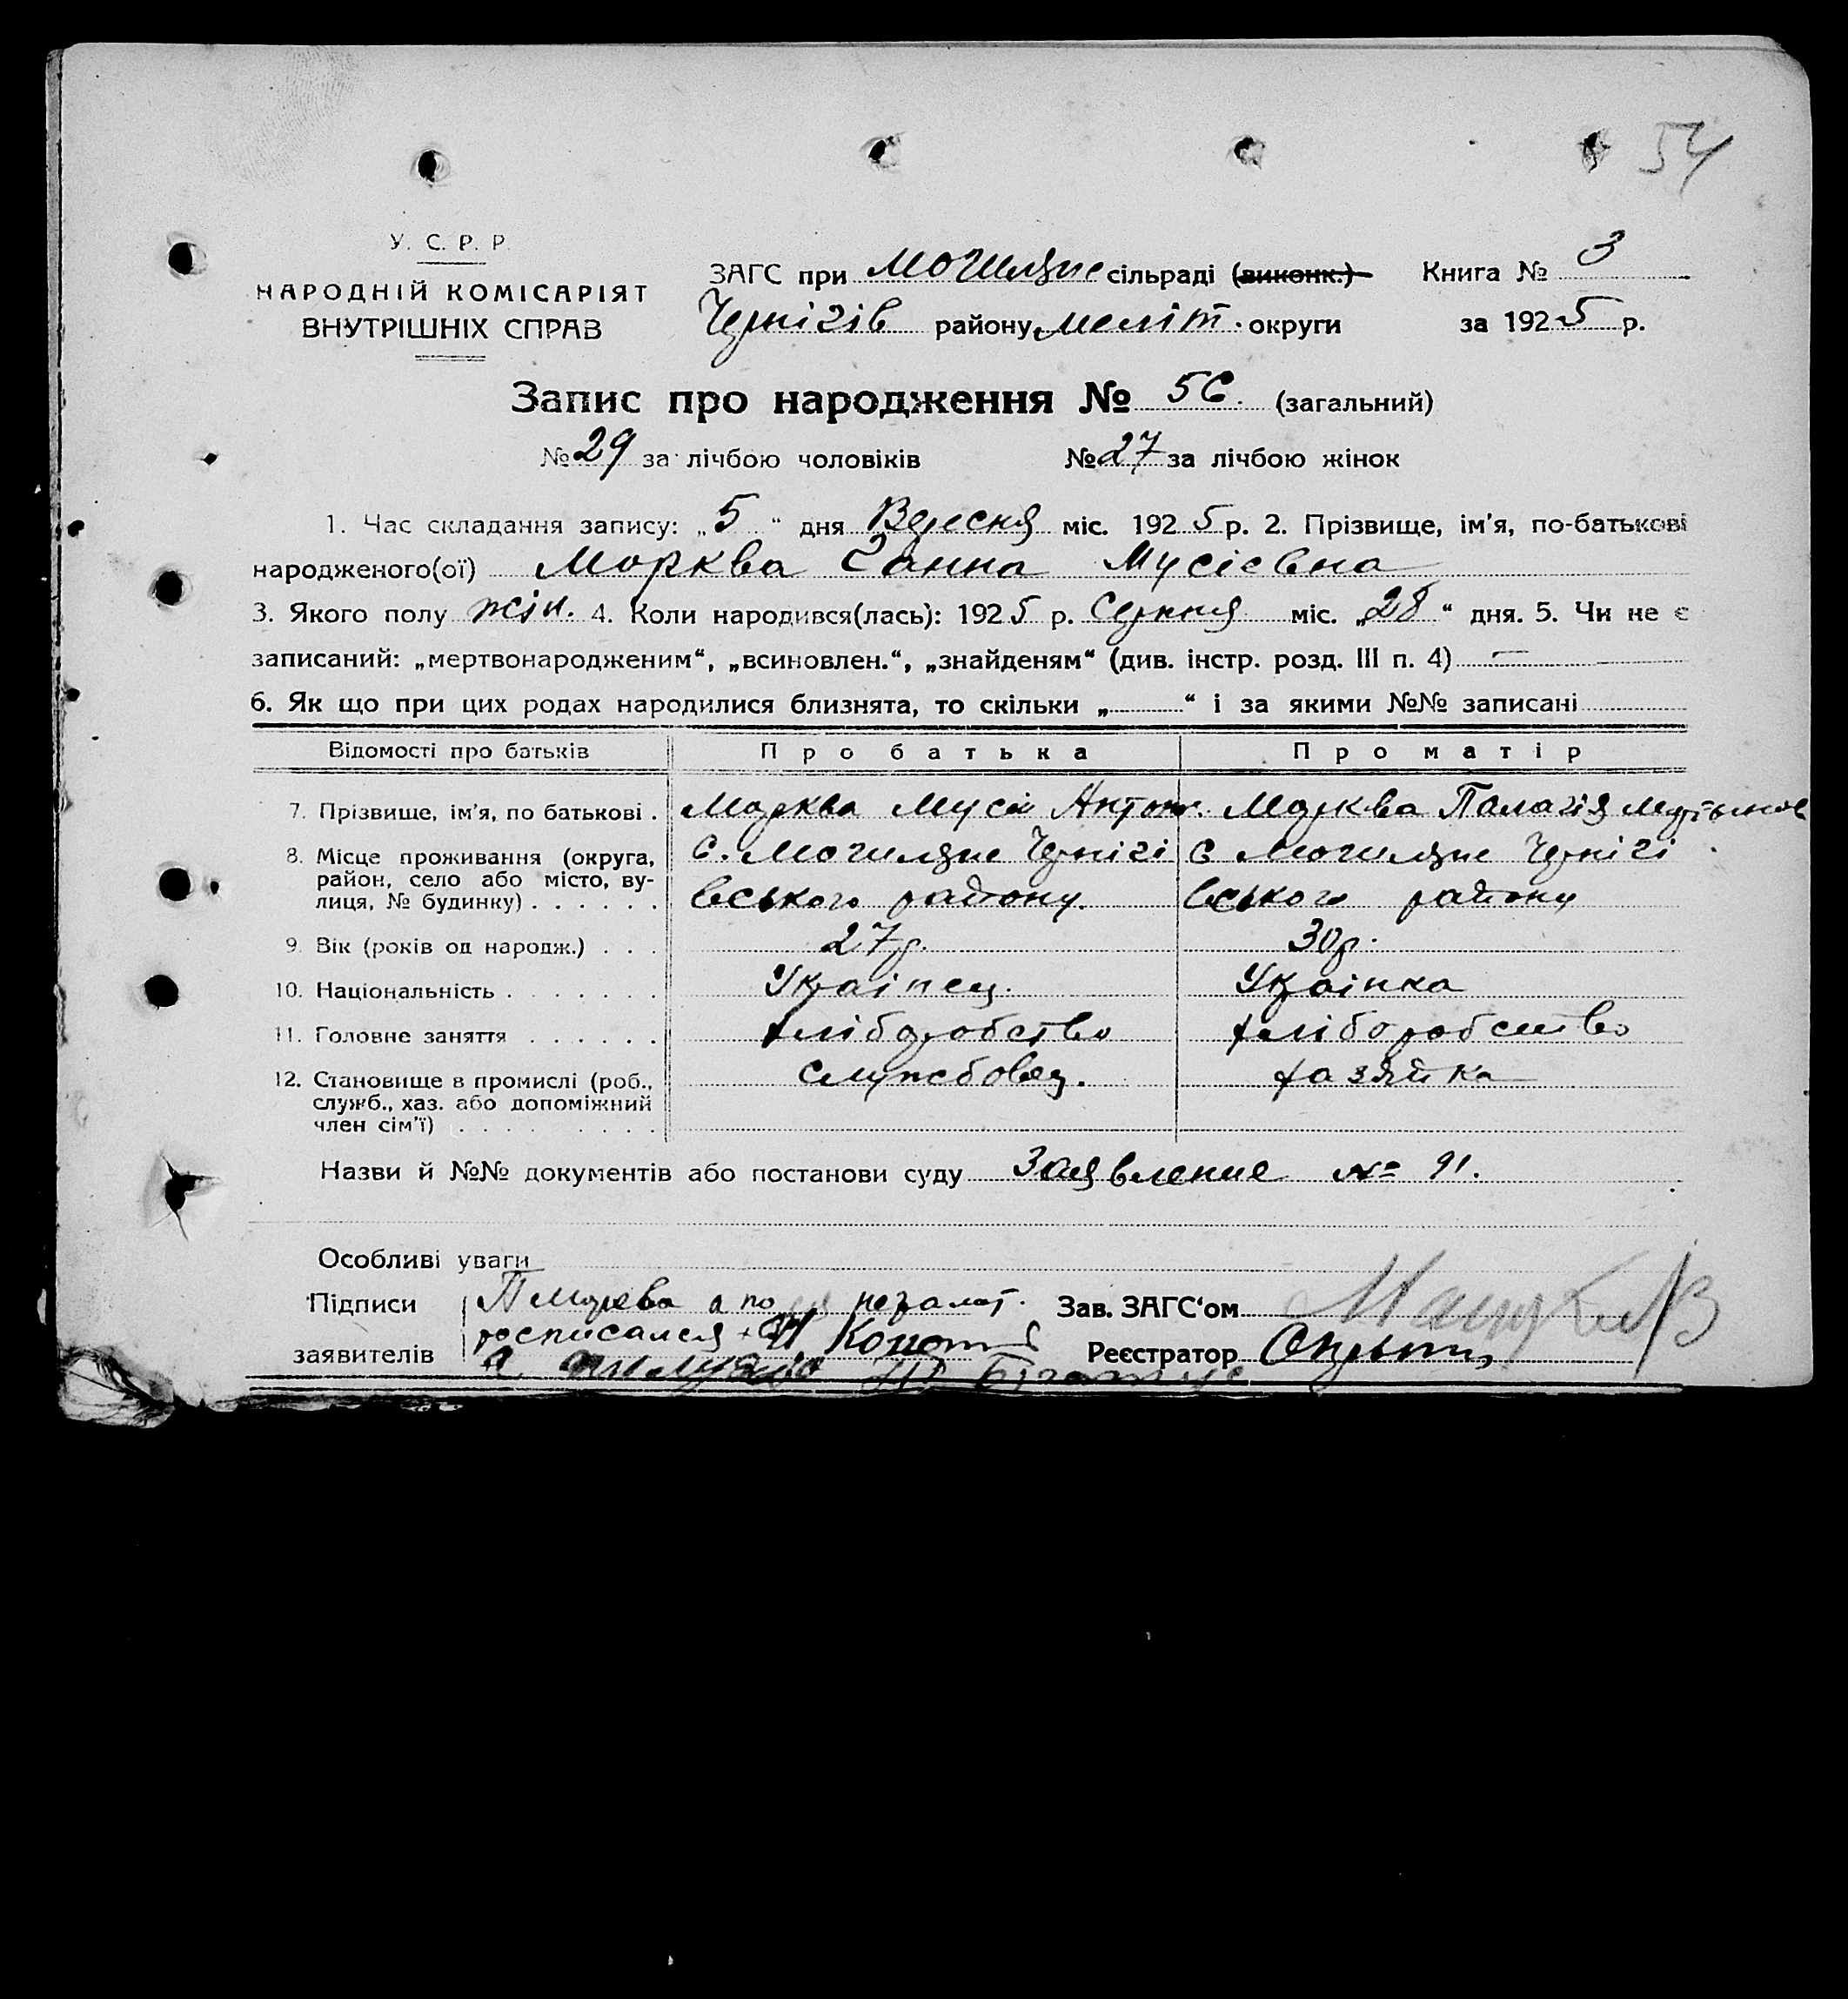 54
У. С. Р. Р.
НАРОДНІЙ КОМІСАРІЯТ
ВНУТРІШНІХ СПРАВ
ЗАГС при Могиляне сільраді (виконк.) Книга № 3
Чернігів району меліт. округи за 1925 р.
Запис про народження № 56. (загальний)
№ 29 за лічбою чоловіків № 27 за лічбою жінок
1. Час складання запису: „5“ дня Вересня міс. 1925 р. 2. Прізвище, ім'я, по-батькові
народженого(ої) Морква Ганна Мусієвна
3. Якого полу жін. 4. Коли народився(лась): 1925 р. Серпня міс. „28“ дня. 5. Чи не є
записаний: „мертвонародженим“, „всиновлен.“, „знайденям“ (див. інстр. розд. III п. 4) —
6. Як що при цих родах народилися близнята, то скільки „ “ і за якими №№ записані
Відомості про батьків Про батька Про матір
7. Прізвище, ім'я, по батькові . Морква Мусій Антон. Морква Палагія
8. Місце проживання (округа, район, село або місто, вулиця, № будинку) . . . . . . с. Могиляне Чернігі с Могиляне Чернігі
вського району. вського району
9. Вік (років од народж.) . . . 27р. 30р.
10. Національність . . . . . . . Українец. Українка
11. Головне заняття . . . . . . хліборобство хліборобство
12. Становище в промислі (роб., служб., хаз. або допоміжний член сім'ї) . . . . . . . . . службовец. хазяйка
Назви й №№ документів або постанови суду Заявление № 91.
Особливі уваги
Підписи П Морква а по неграмот. Зав. ЗАГС'ом
росписался
заявителів Реєстратор